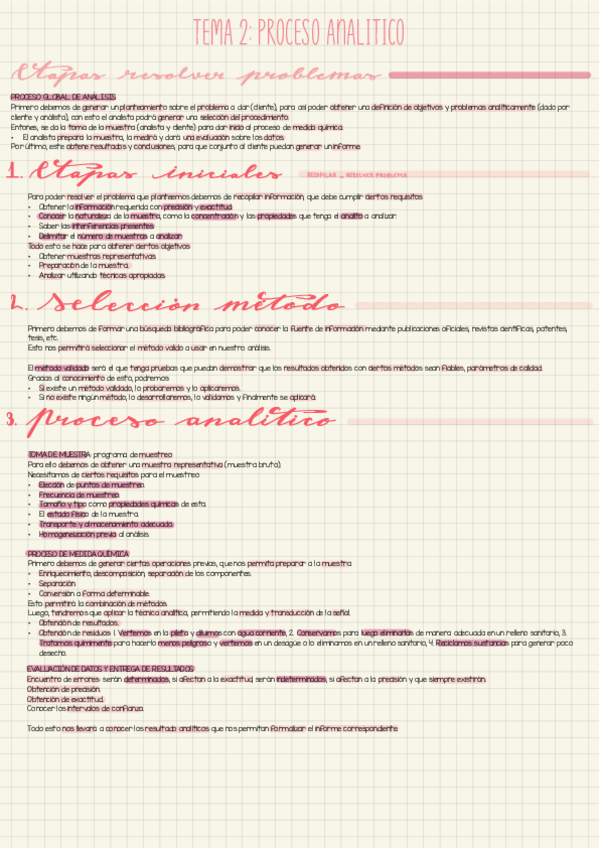 TEMA 2: PROCESO ANALITICO
Etapas resolver problemas
PROCESO GLOBAL DE ANÁLISIS
Primero debemos de generar un planteamiento sobre el problema a dar (cliente), para así poder obtener una definición de objetivos y problemas analíticamente (dado por
cliente y analista), con esto el analista podrá generar una selección del procedimiento.
Entonces, se da la toma de la muestra (analista y cliente) para dar inicio al proceso de medida química.
• El analista prepara la muestra, la medirá y dará una evaluación sobre los datos.
Por último, este obtiene resultados y conclusiones, para que conjunto al cliente puedan generar un informe.
1. Etapas iniciales
RECOPILAR → RESOLVER PROBLEMA
Para poder resolver el problema que planteemos debemos de recopilar información, que debe cumplir ciertos requisitos
• Obtener la información requerida con precisión y exactitud.
• Conocer la naturaleza de la muestra, como la concentración y las propiedades que tenga el analito a analizar.
• Saber las interferencias presentes
• Delimitar el número de muestras a analizar
Todo esto se hace para obtener ciertos objetivos
• Obtener muestras representativas
• Preparación de la muestra.
• Analizar utilizando técnicas apropiadas
2. Selección método
Primero debemos de formar una búsqueda bibliográfica para poder conocer la fuente de información mediante publicaciones oficiales, revistas científicas, patentes,
tesis, etc.
Esto nos permitirá seleccionar el método valido a usar en nuestro análisis.
El método validado será el que tenga pruebas que puedan demostrar que los resultados obtenidos con ciertos métodos sean fiables, parámetros de calidad.
Gracias al conocimiento de esto, podremos
• Si existe un método validado, lo probaremos y lo aplicaremos.
• Si no existe ningún método, lo desarrollaremos, lo validamos y finalmente se aplicará.
3. proceso analítico
TOMA DE MUESTRA: programa de muestreo
Para ello debemos de obtener una muestra representativa (muestra bruta).
Necesitamos de ciertos requisitos para el muestreo
• Elección de puntos de muestreo.
• Frecuencia de muestreo.
• Tamaño y tipo como propiedades químicas de esta.
• El estado físico de la muestra.
• Transporte y almacenamiento adecuado.
• Homogeneización previa al análisis.
PROCESO DE MEDIDA QUÍMICA
Primero debemos de generar ciertas operaciones previas, que nos permita preparar a la muestra
• Enriquecimiento, descomposición, separación de los componentes.
• Separación
• Conversión a forma determinable.
Esto permitirá la combinación de métodos.
Luego, tendremos que aplicar la técnica analítica, permitiendo la medida y transducción de la señal.
• Obtención de resultados.
• Obtención de residuos 1. Vertemos en la pileta y diluimos con agua corriente, 2. Conservamos para luego eliminarlas de manera adecuada en un relleno sanitario, 3.
Tratamos quimimente para hacerlo menos peligroso y vertemos en un desagüe o lo eliminamos en un relleno sanitario, 4. Reciclamos sustancias para generar poco
desecho.
EVALUACIÓN DE DATOS Y ENTREGA DE RESULTADOS
Encuentro de errores: serán determinados, si afectan a la exactitud, serán indeterminados, si afectan a la precisión y que siempre existirán.
Obtención de precisión.
Obtención de exactitud.
Conocer los intervalos de confianza.
Todo esto nos llevará a conocer los resultado analíticos que nos permitan formalizar el informe correspondiente.